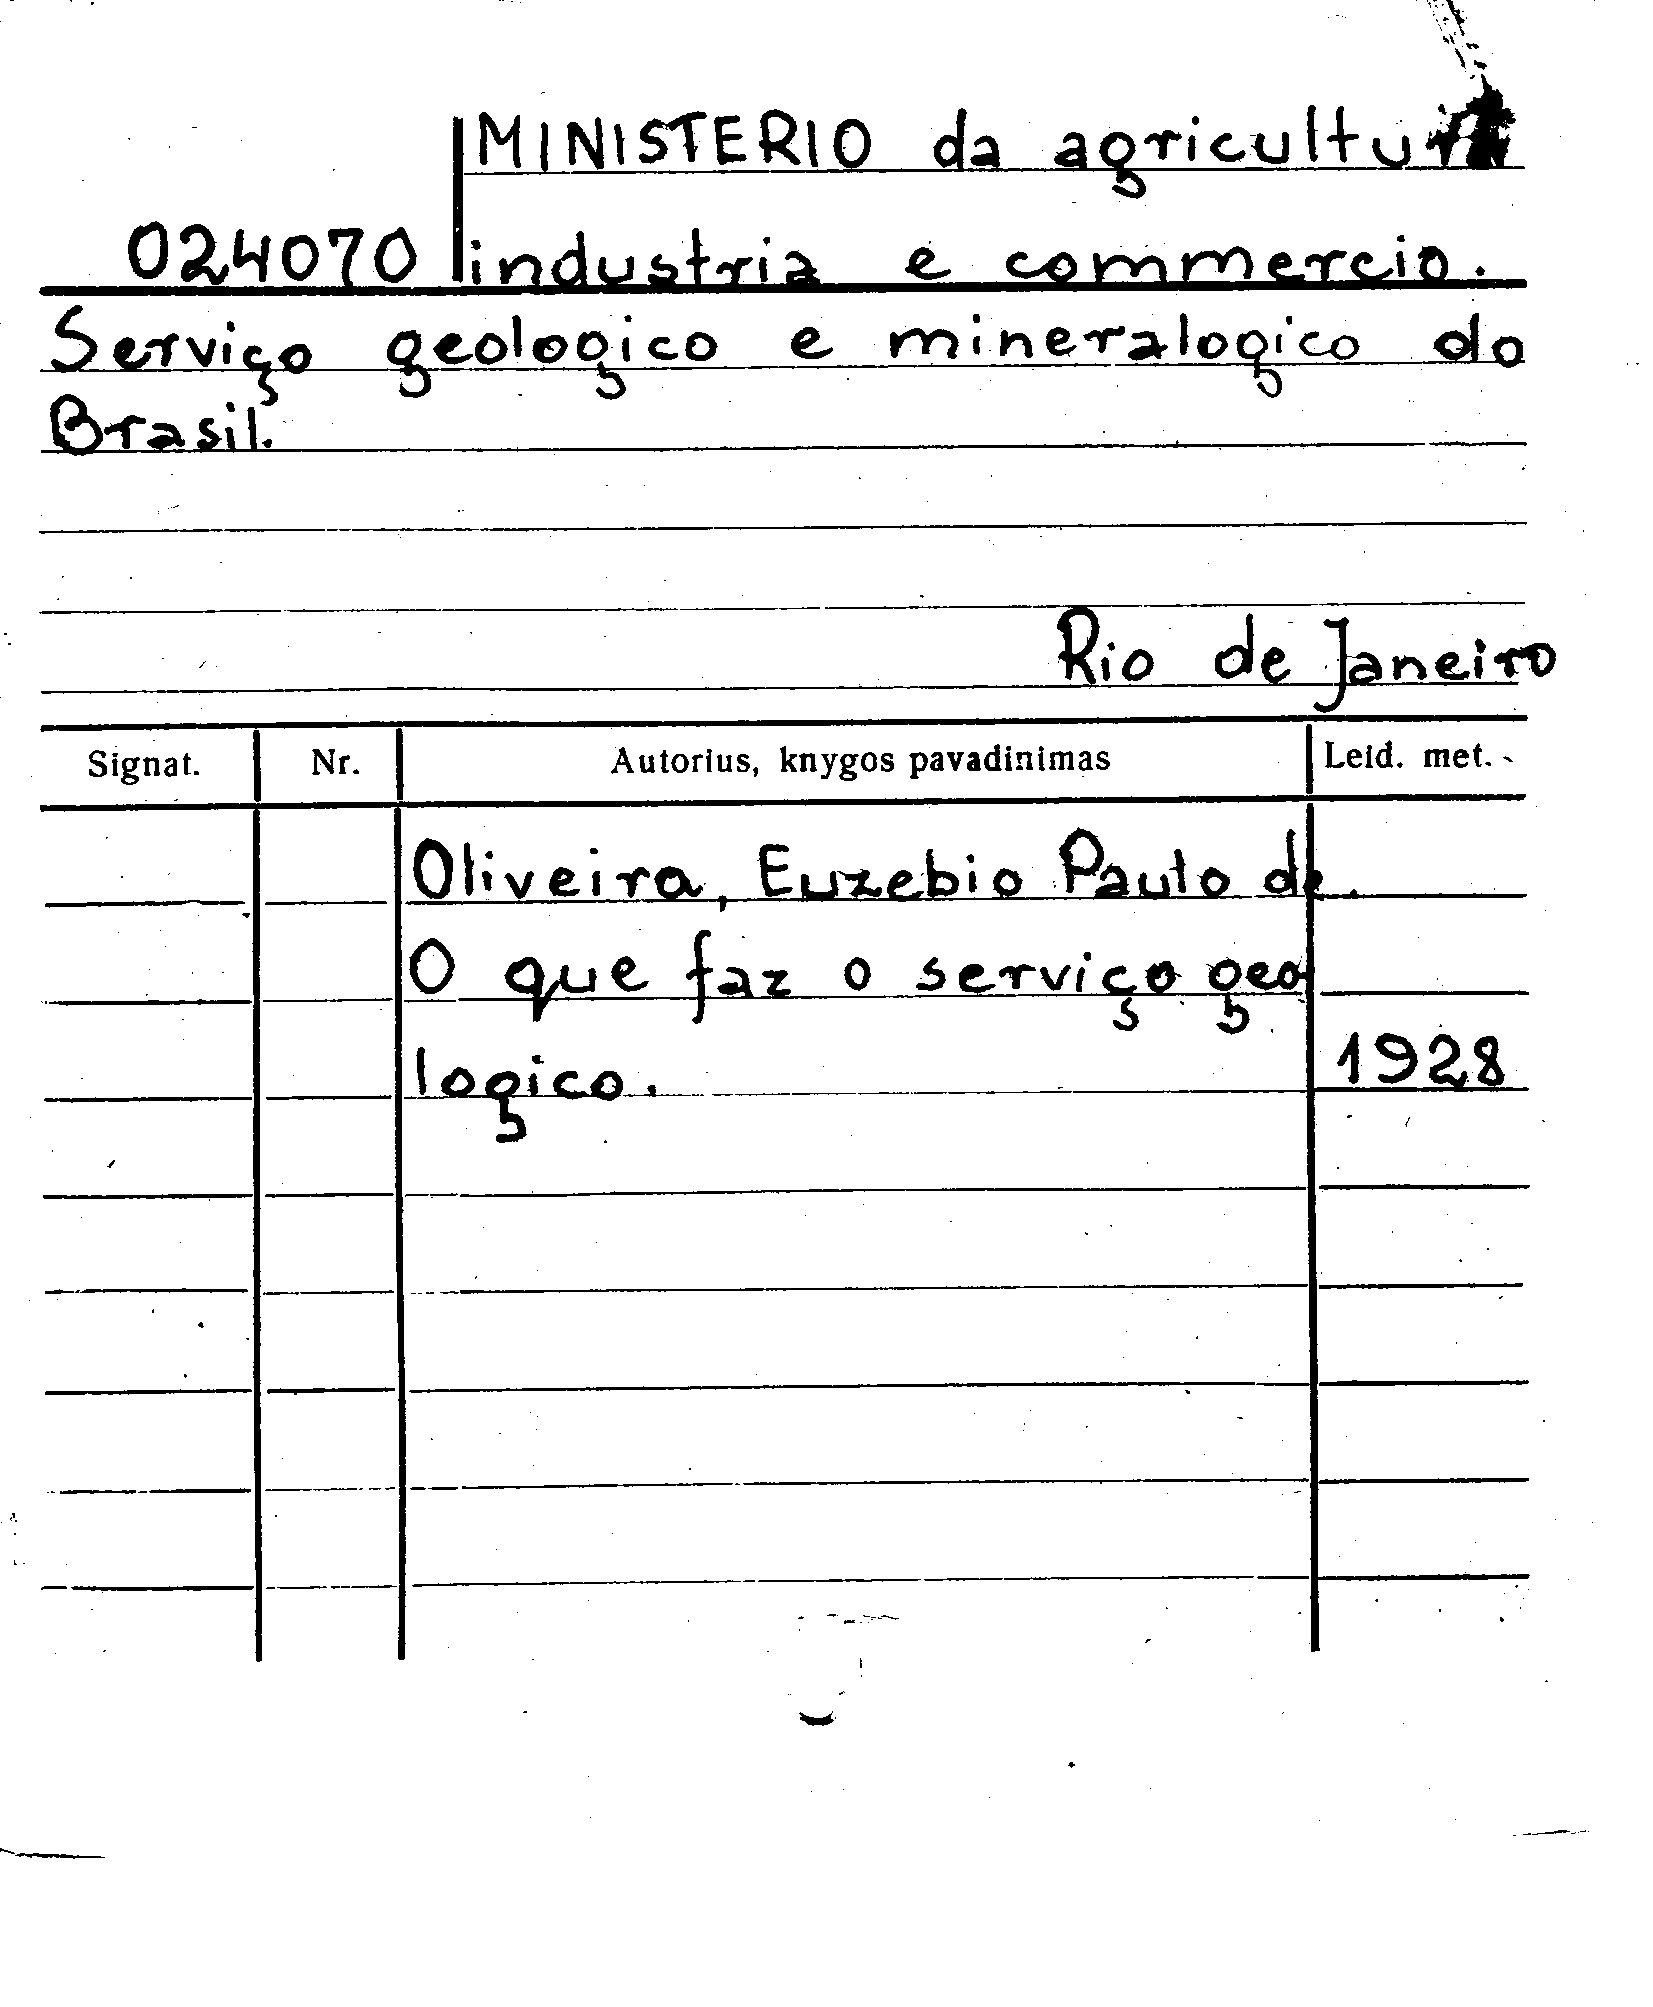 MINISTERIO da agricultura
024070 industria e commercio.
Serviço geologico e mineralogico do
Brasil.
Rio de Janeiro
Signat. Nr. Autorius, knygos pavadinimas Leid. met.
Oliveira, Euzebio Paulo de.
O que faz o serviço geo
logico. 1928